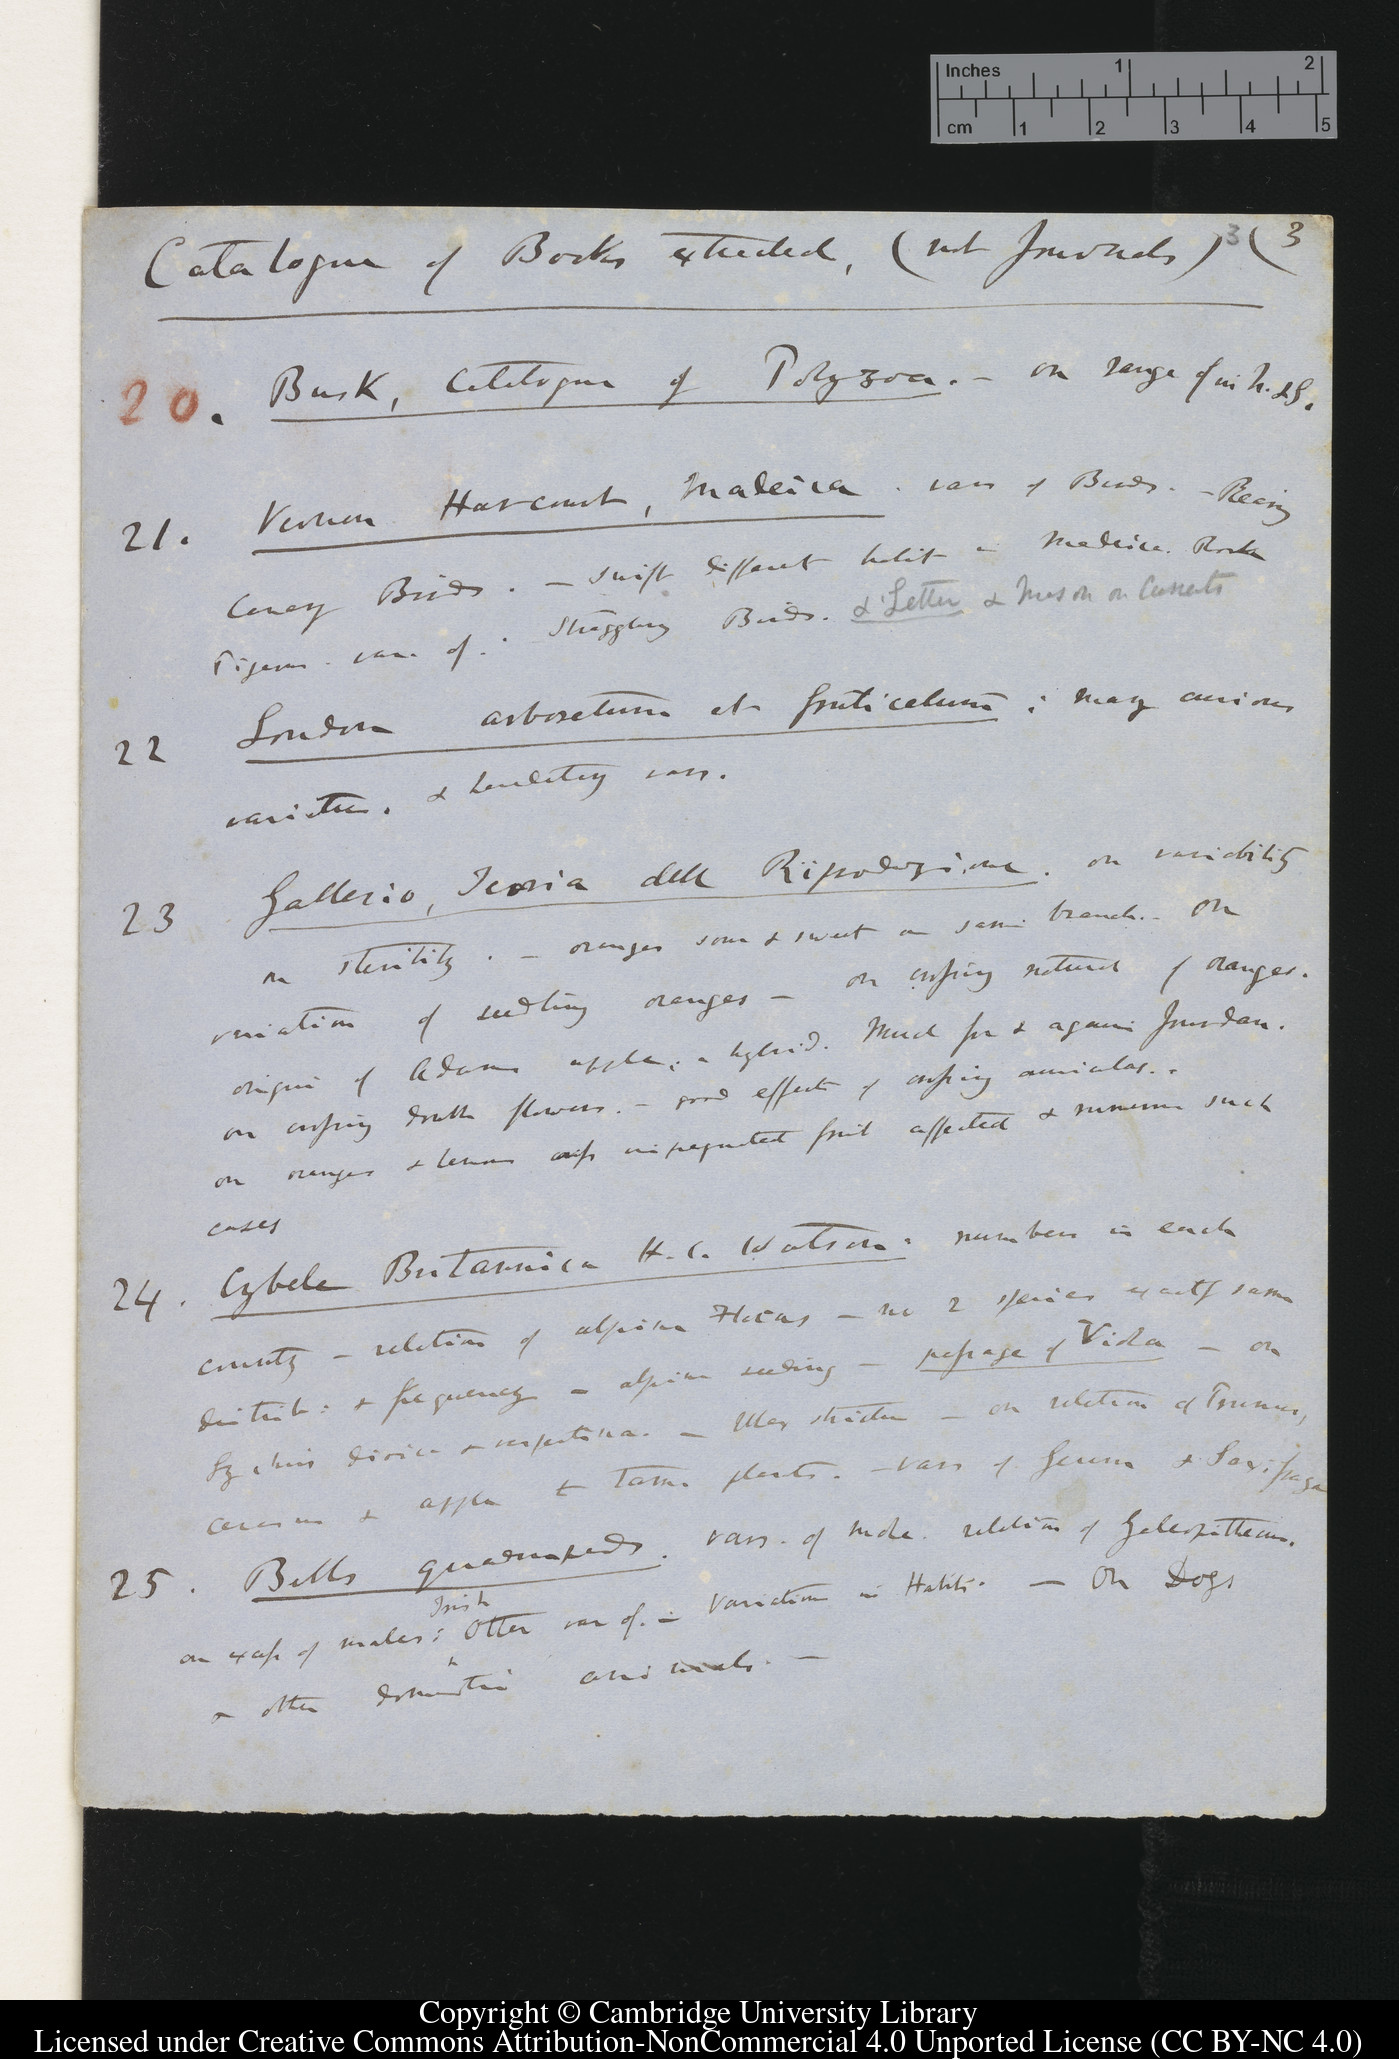 Inches 1 2
cm 1 2 3 4 5
Catalogue of Books extracted, (not Journals) 3 (3
20. Busk, Catalogue of Polyzoa. — on range of in N. & S.
21. Vernon Harcourt, Madeira. vars of Birds. —
Canary Birds. — Swift different habit in Madeira. Rock
Pigeon. vars of. Straggling Birds. & Letter & Mason on Currents
22 Loudon arboretum et fruticetum; many curious
varieties. & hereditary vars.
23 Gallesio, Teoria della Riproduzione. on variability
on sterility. — oranges sour & sweet on same branch. — On
variation of seedling oranges — on crossing natural of oranges.
origin of Adams apple; a hybrid. Much for & again Jourdan.
on crossing double flowers. — good effects of crossing auriculas. .
on oranges & lemons impregnated fruit affected & numerous such
cases
24. Cybele Britannica H. C. Watson. numbers in each
county — relation of alpine Floras — no 2 species exactly same
distrib: & frequency — alpine seeding — passage of Viola — on
Lychnis dioica & vespertina. — Ulex strictus — on relation of Prunus,
cerasus & apple to tame plants. — vars of Geum & Saxifraga
25. Bells quadrupeds. vars. of mole. relation of Galeopithecus.
on excess of males; Irish Otter var of. — Variation in Habits. — On Dogs
& other domestic animals. —
Copyright © Cambridge University Library
Licensed under Creative Commons Attribution-NonCommercial 4.0 Unported License (CC BY-NC 4.0)